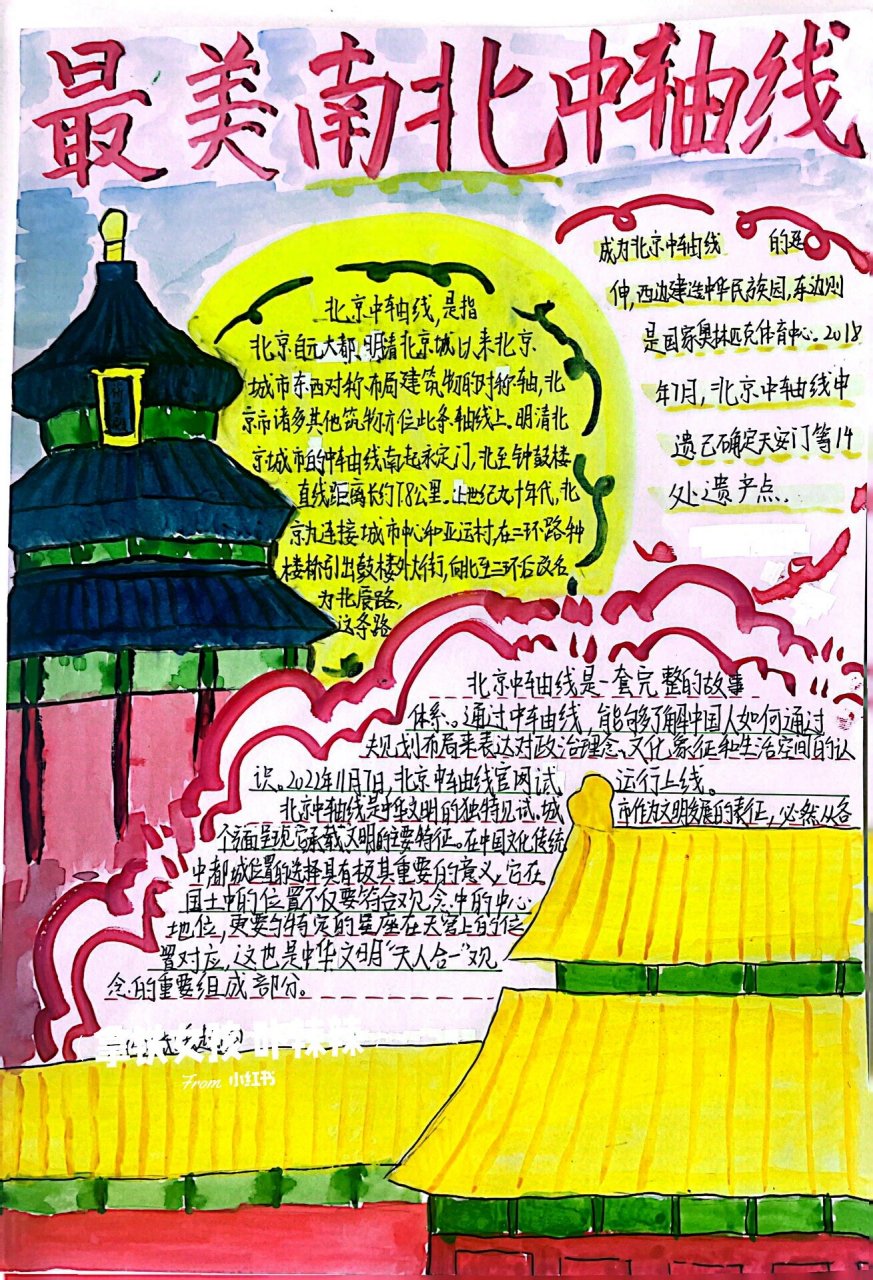 最美南北中轴线
北京中轴线,是指
北京自元大都、明清北京城以来北京
城市东西对称布局建筑物的对称轴,北
京市诸多其他筑物亦位此条轴线上。明清北
京城市的中轴线南起永定门,北至钟鼓楼
直线距离长约7.8公里。上世纪九十年代,北
京九连接城市中心和亚运村,在二环路钟
楼桥引出鼓楼外大街,向北至三环后改名
为北辰路,
这条路
成为北京中轴线 的延
伸,西边建造中华民族园,东边则
是国家奥林匹克体育中心。2018
年7月,北京中轴线申
遗已确定天安门等14
处遗产点.
北京中轴线是一套完整的故事
体系。通过中轴线,能够了解中国人如何通过
规划布局来表达对政治理念、文化象征和生活空间的认
识。2022年11月7日,北京中轴线官网试 运行上线。
北京中轴线是中华文明的独特见证.城 市作为文明发展的表征,必然从各
个面呈现它承载文明的主要特征。在中国文化传统
中都城位置的选择具有极其重要的意义,它在
国土中的位置不仅要符合观念中的中心
地位,更要与特定的星座在天空上的位
置对应,这也是中华文明“天人合一”观
念的重要组成部分。
From 小红书